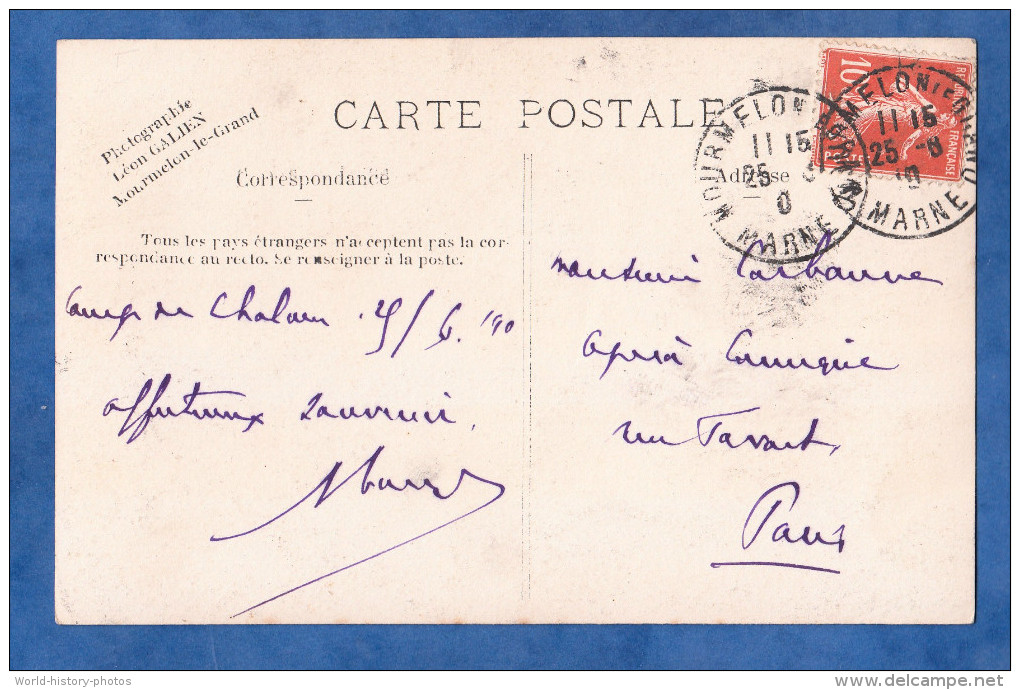 CARTE POSTALE
Photographie
Léon GALIEN
Mourmelon-le-Grand
Correspondance
Tous les pays étrangers n'acceptent pas la cor-
respondance au recto. Se renseigner à la poste.
Camp de Chalons 25/6.10
affectueux souvenir.
Adresse
Monsieur
Opéra Comique
rue Favart
Paris
10
FRANÇAISE
MOURMELON
11 15
25
0
MARNE
11 15
25 -6
MARNE
World-history-photos
delcampe.net